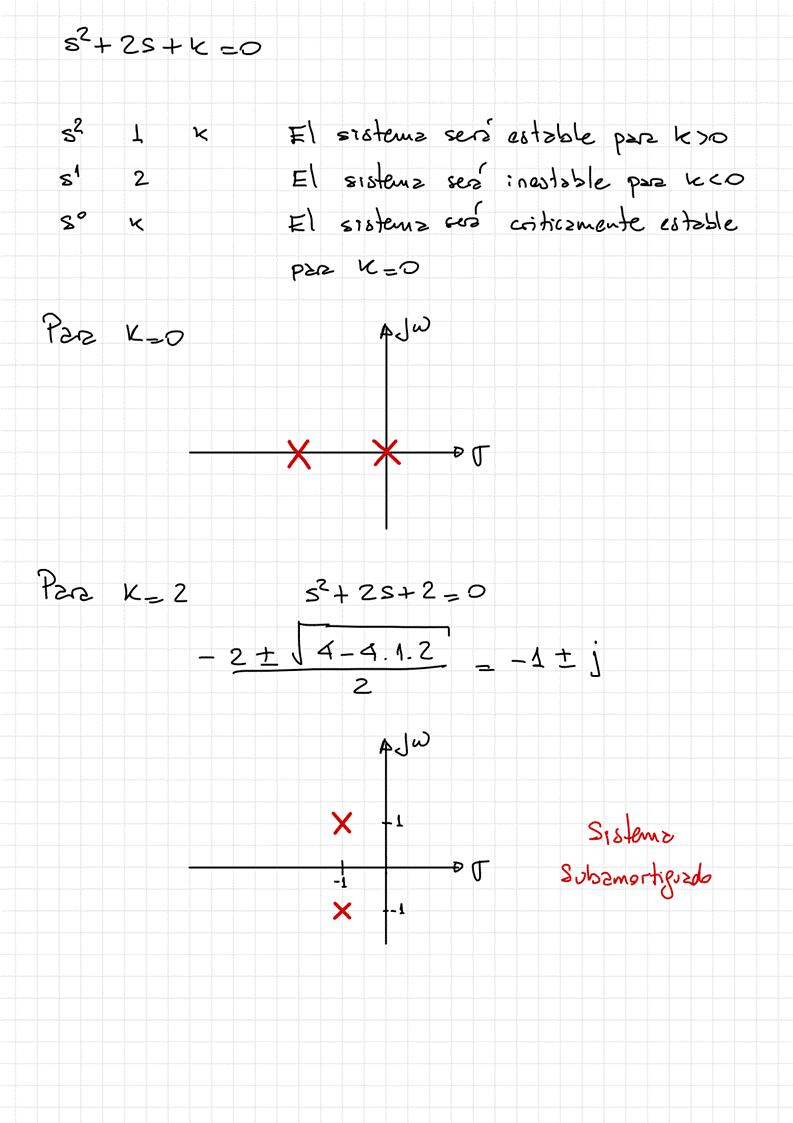 s²+2s+k=0
s² 1 k El sistema será estable para k>0
s¹ 2 El sistema será inestable para k<0
s⁰ k El sistema será criticamente estable
para k=0
Para k=0
jω
σ
Para k=2 s²+2s+2=0
-2±√4-4.1.2 / 2 = -1±j
jω
1
σ
-1
-1
Sistema
Subamortiguado